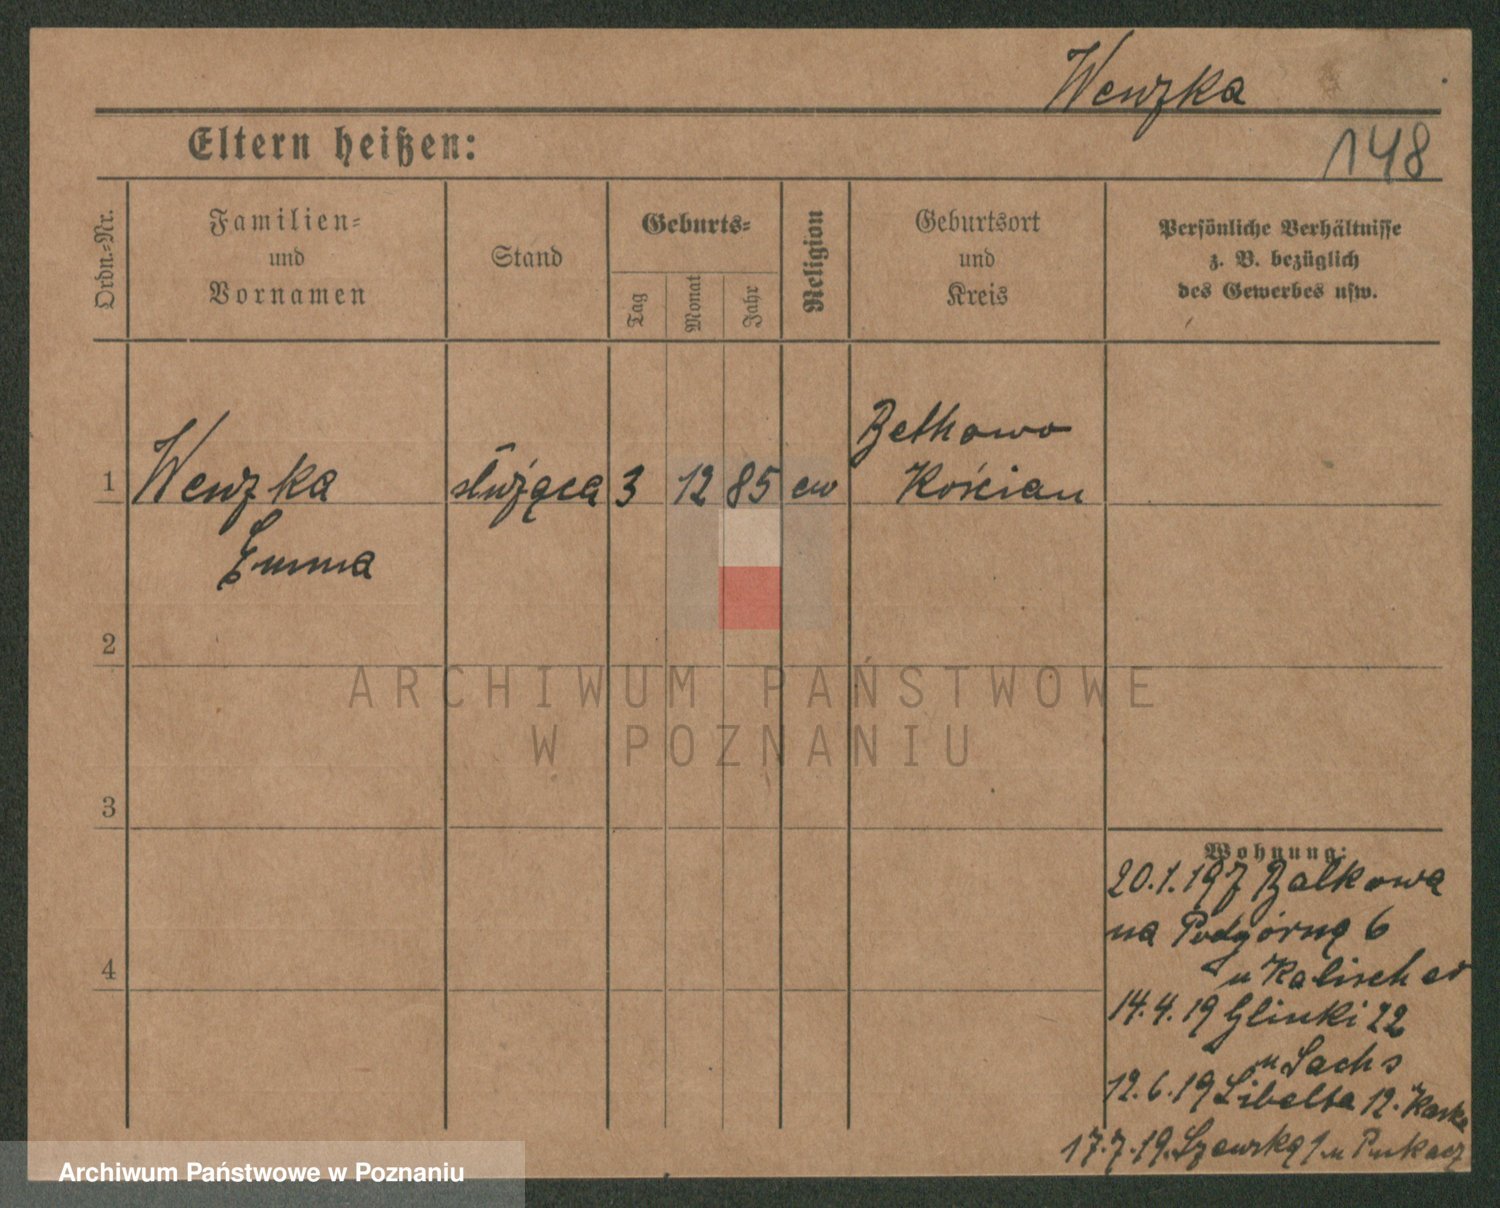 Wenzka
Eltern heißen:
148
Ordn.-Nr.
Familien-
und
Vornamen
Stand
Geburts-
Tag
Monat
Jahr
Religion
Geburtsort
und
Kreis
Persönliche Verhältnisse
z. B. bezüglich
des Gewerbes usw.
1 Wenzka służąca 3 12 85 ew
Emma
Bethowo
Kościan
2
3
4
Wohnung:
20.1.19 z Balkowa
na Podgórną 6
u Kalisch
14.4.19 Glinki 22
u Sachs
12.6.19 Libelta 12.
17.7.19. Szewską
ARCHIWUM PAŃSTWOWE
W POZNANIU
Archiwum Państwowe w Poznaniu